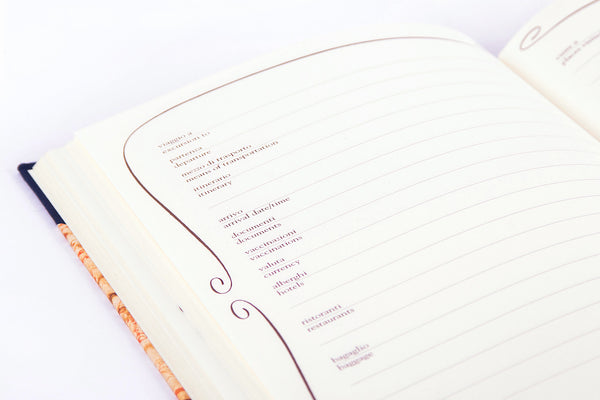 viaggio a
excursion to
partenza
departure
mezzo di trasporto
means of transportation
itinerario
itinerary
arrivo
arrival date/time
documenti
documents
vaccinazioni
vaccinations
valuta
currency
alberghi
hotels
ristoranti
restaurants
bagaglio
baggage